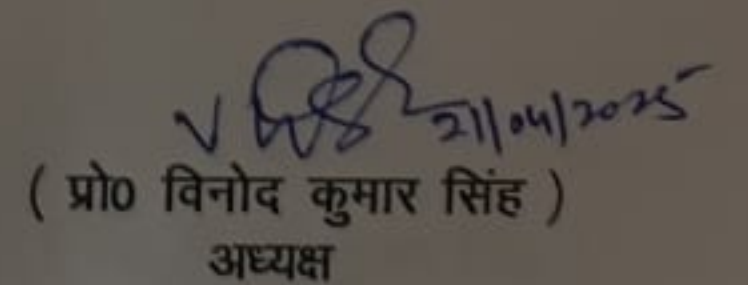 21/04/2025
( प्रो0 विनोद कुमार सिंह )
अध्यक्ष